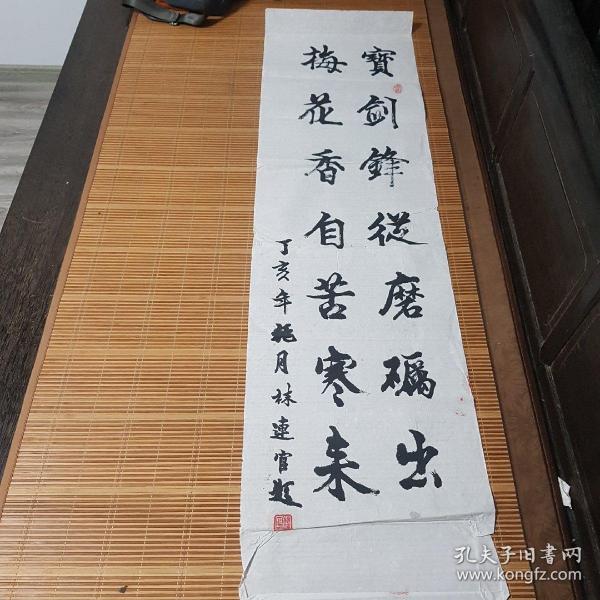 寳劍鋒從磨礪出
梅花香自苦寒来
丁亥年桃月林連官題
孔夫子旧書网
www.kongfz.com